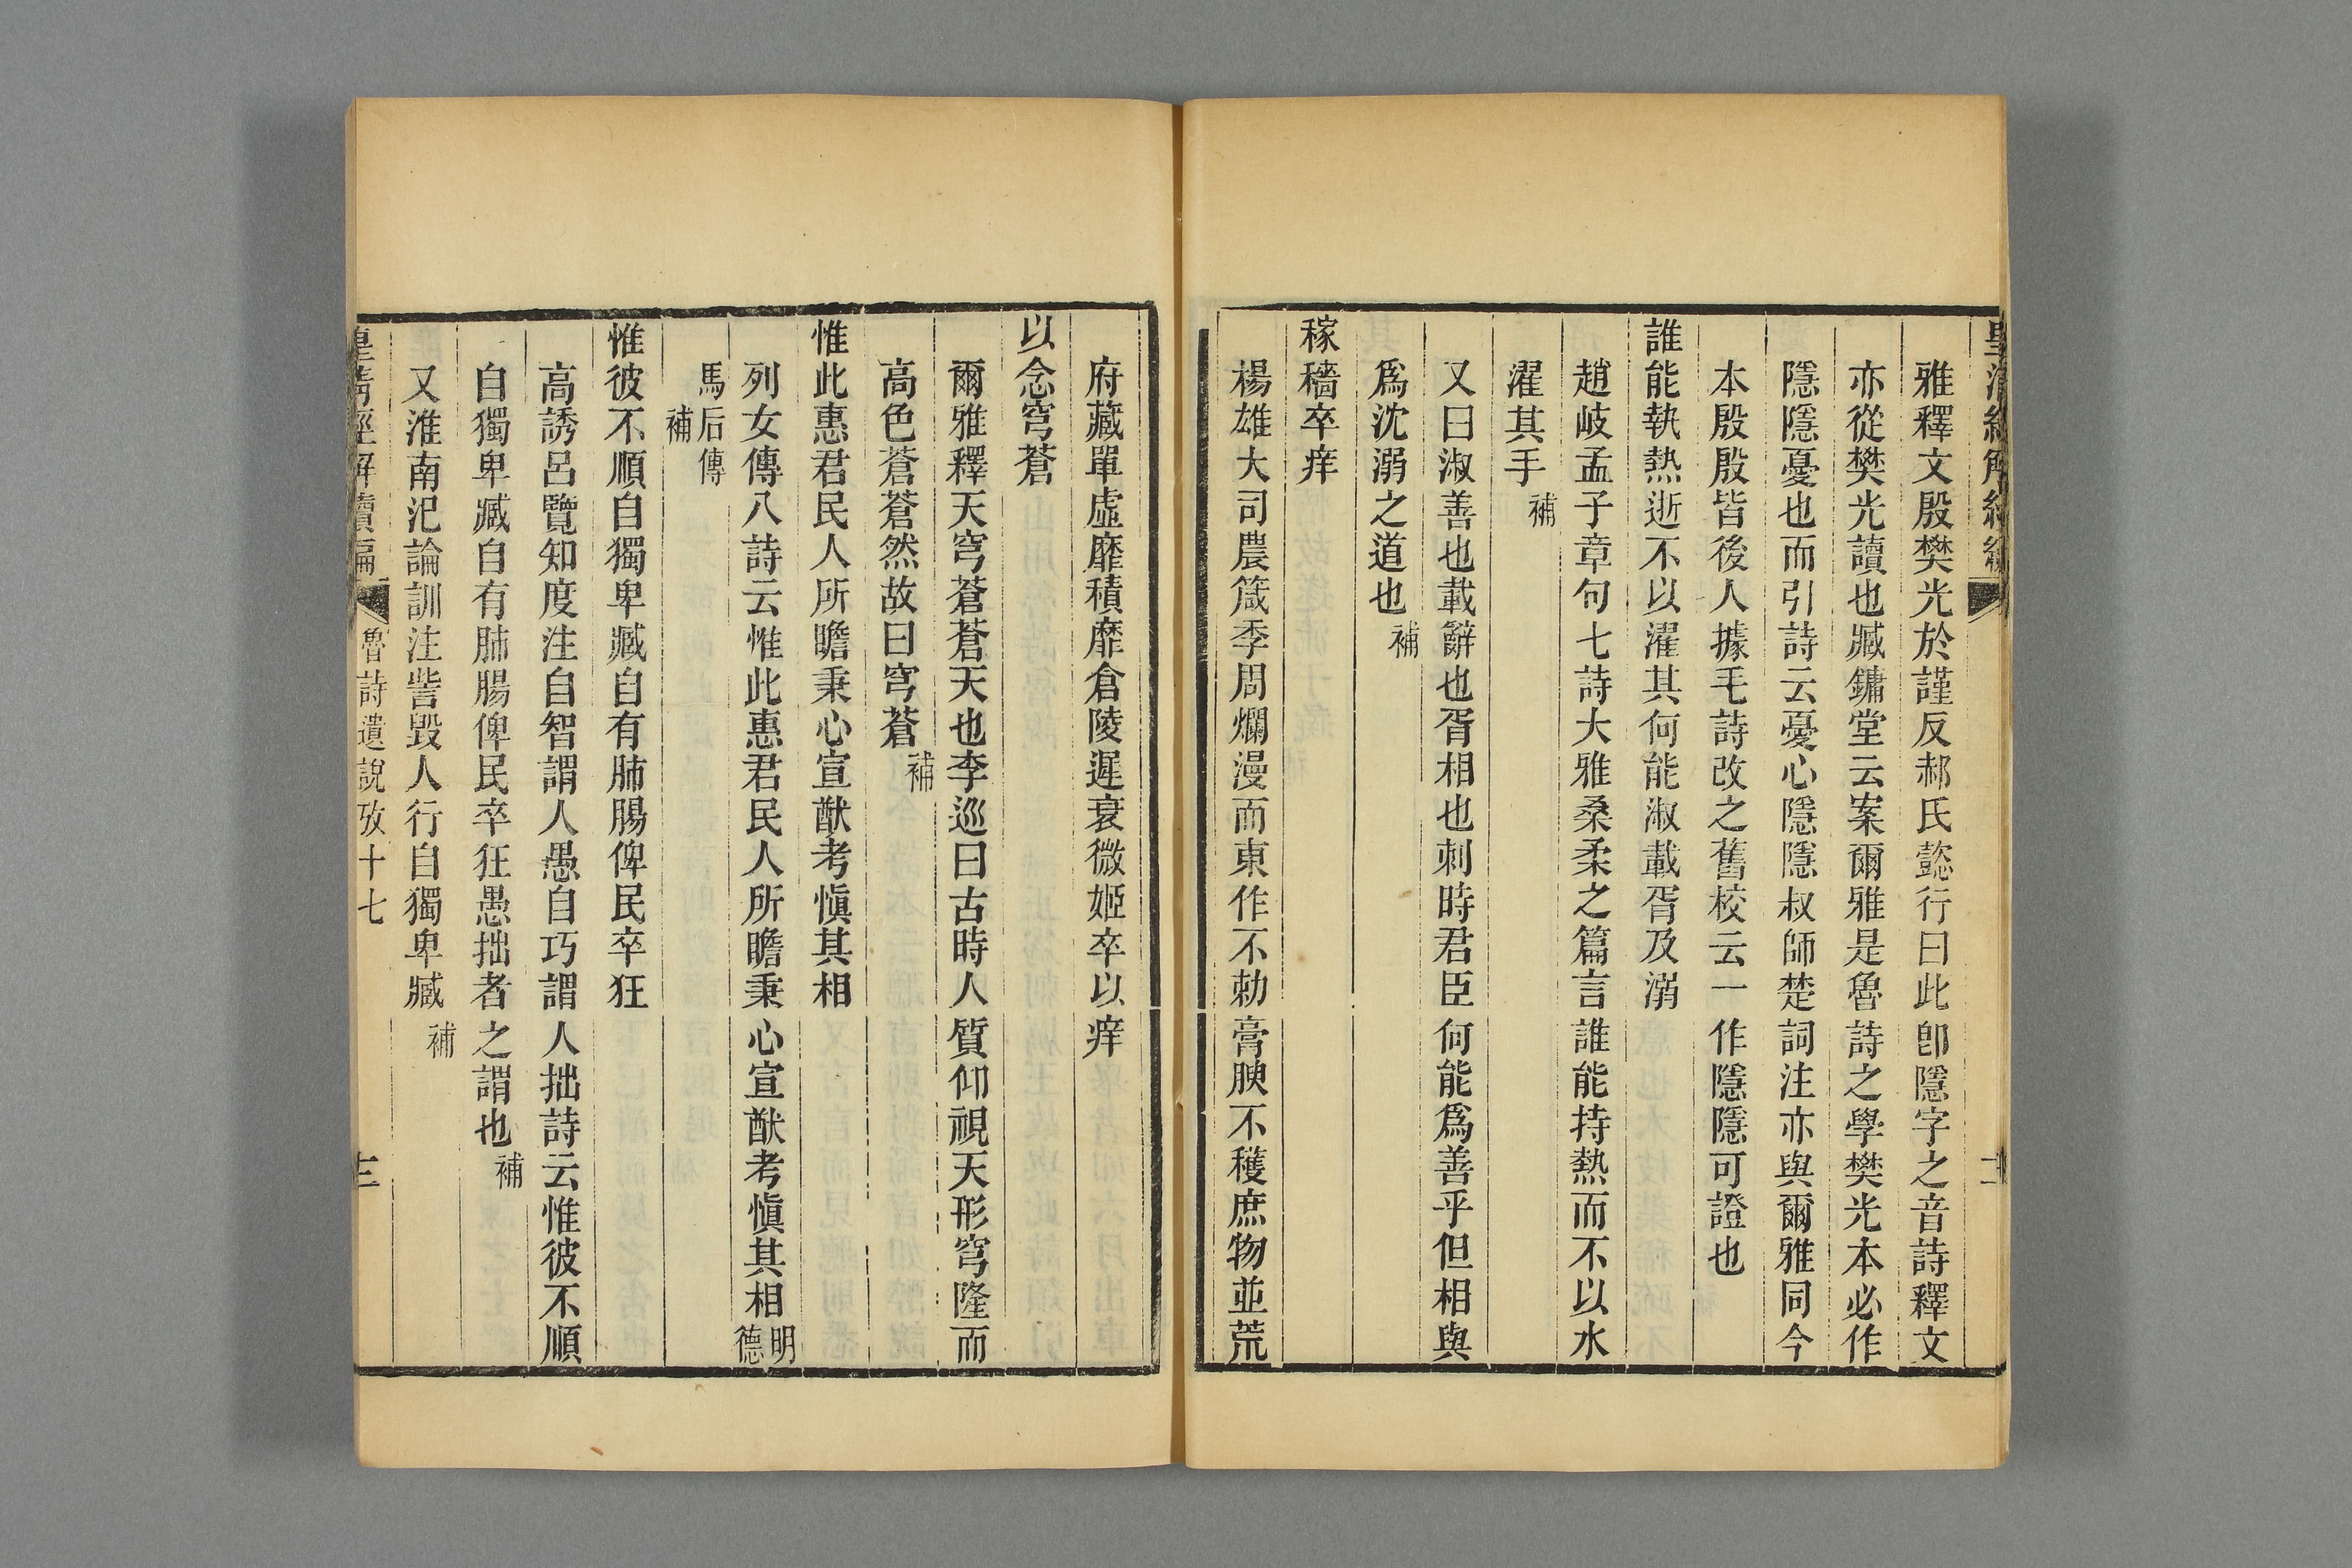 皇清經解續編
二
雅釋文殷樊光於謹反郝氏懿行曰此卽隱字之音詩釋文
亦從樊光讀也臧鏞堂云案爾雅是魯詩之學樊光本必作
隱隱憂也而引詩云憂心隱隱叔師楚詞注亦與爾雅同今
本殷殷皆後人據毛詩改之舊校云一作隱隱可證也
誰能執熱逝不以濯其何能淑載胥及溺
趙岐孟子章句七詩大雅桑柔之篇言誰能持熱而不以水
濯其手補
又曰淑善也載辭也胥相也刺時君臣何能爲善乎但相與
爲沈溺之道也補
稼穡卒痒
楊雄大司農箴季周爛漫而東作不勑膏腴不穫庶物並荒
府藏單虛靡積靡倉陵遲衰微姬卒以痒
以念穹蒼
爾雅釋天穹蒼蒼天也李巡曰古時人質仰視天形穹隆而
高色蒼蒼然故曰穹蒼補
惟此惠君民人所瞻秉心宣猷考愼其相
列女傳八詩云惟此惠君民人所瞻秉心宣猷考愼其相明德
馬后傳補
惟彼不順自獨卑臧自有肺腸俾民卒狂
高誘呂覽知度注自智謂人愚自巧謂人拙詩云惟彼不順
自獨卑臧自有肺腸俾民卒狂愚拙者之謂也補
又淮南氾論訓注訾毀人行自獨卑臧補
皇清經解續編
魯詩遺說攷十七
三